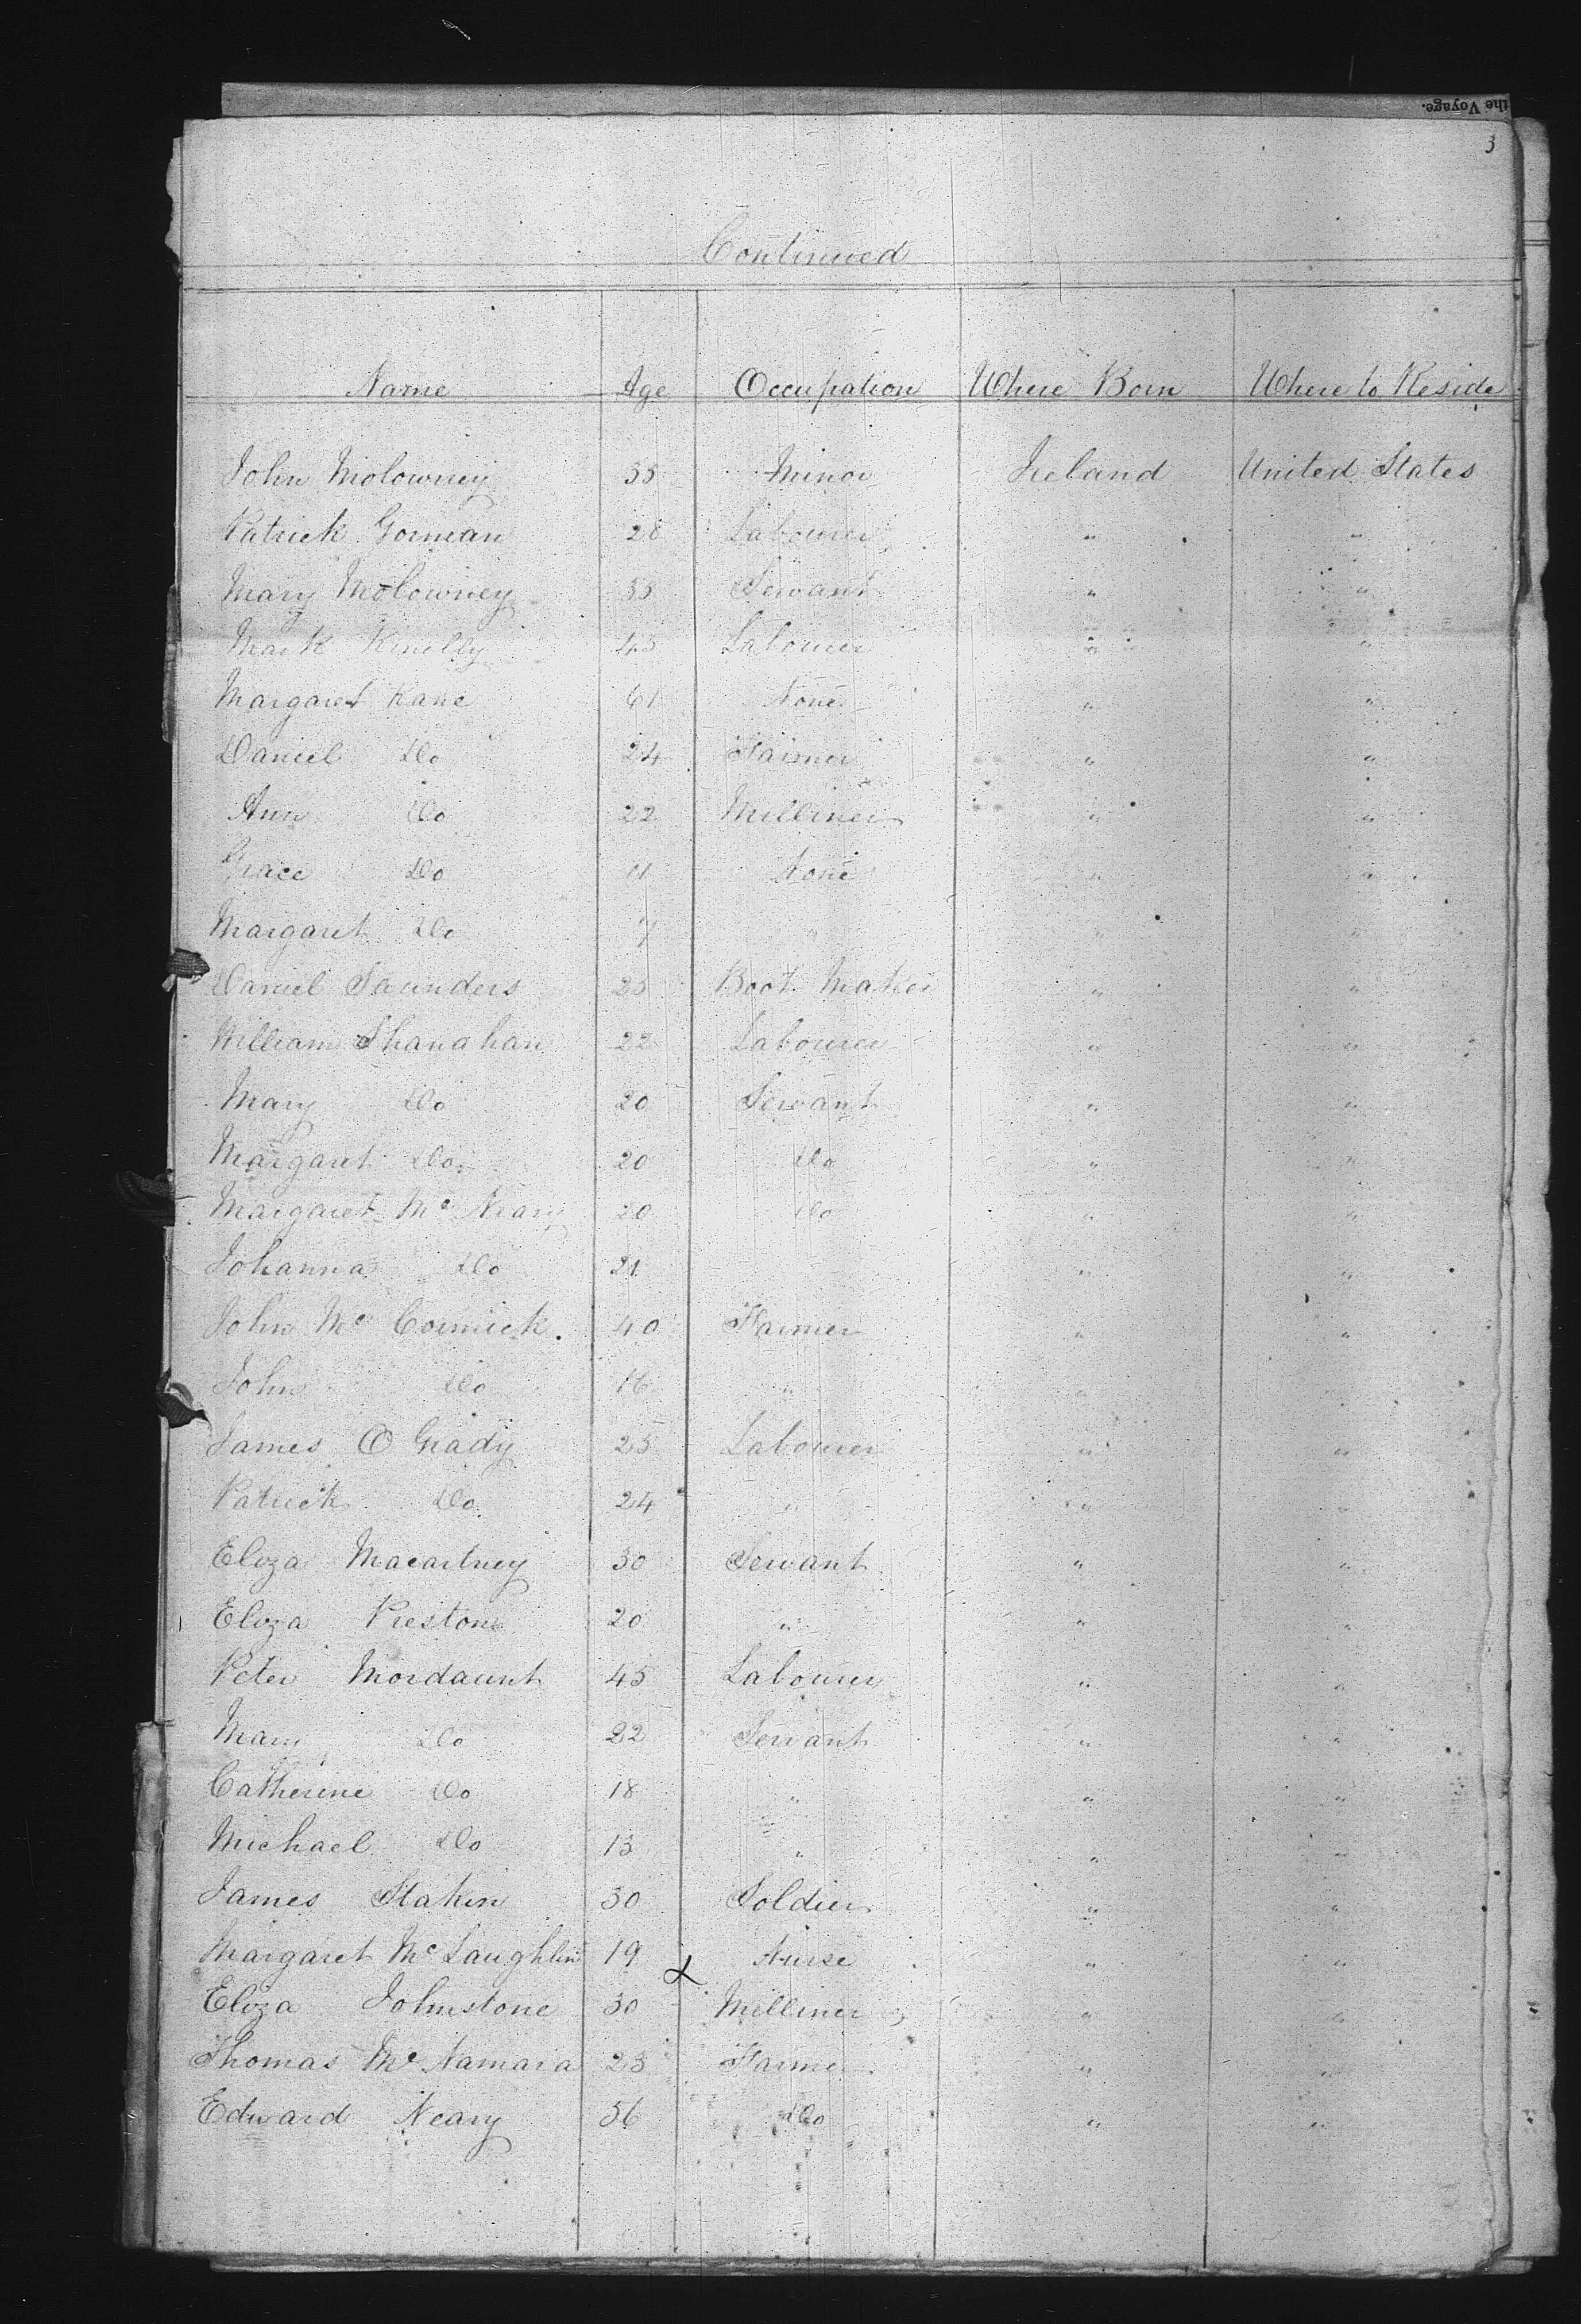 the Voyage.
3
Continued
Name Age Occupation Where Born Where to Reside
John Molowney 35 Minor Ireland United States
Patrick Gorman 28 Labourer " "
Mary Molowney 35 Servant " "
Mark 45 Labourer " "
Margaret Kane 61 None " "
Daniel Do 24 Farmer " "
Ann Do 22 Milliner " "
Grace Do 11 None " "
Margaret Do 7 " " "
Daniel Saunders 25 Boot Maker " "
William Shanahan 22 Labourer " "
Mary Do 20 Servant " "
Margaret Do 20 Do " "
Margaret Mc Neary 20 Do " "
Johanna Do 21 " "
John Mc Cormick. 40 Farmer " "
John Do 16 " " "
James O Grady 25 Labourer " "
Patrick Do 24 " " "
Eliza Macartney 30 Servant " "
Eliza Preston 20 " " "
Peter Mordaunt 45 Labourer " "
Mary Do 22 Servant " "
Catherine Do 18 " " "
Michael Do 13 " " "
James Stakin 30 Soldier " "
Margaret Mc Laughlin 19 Nurse " "
Eliza Johnstone 30 Milliner " "
Thomas Mc Namara 23 Farmer " "
Edward Neary 56 Do " "